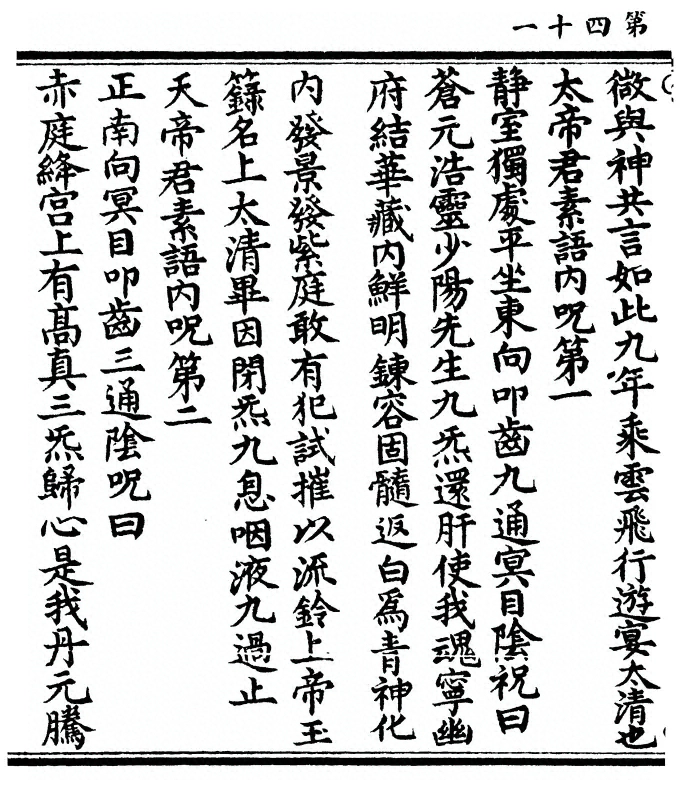 第四十一
微與神共言如此九年乘雲飛行遊宴太清也
太帝君素語内呪第一
靜室獨處平坐東向叩齒九通冥目隂祝曰
蒼元浩靈少陽先生九炁還肝使我魂寧幽
府結華藏内鮮明鍊容固髓返白爲青神化
内發景發紫庭敢有犯試摧以流鈴上帝玉
籙名上太清畢因閉炁九息咽液九過止
天帝君素語内呪第二
正南向冥目叩齒三通隂呪曰
赤庭絳宫上有高真三炁歸心是我丹元騰